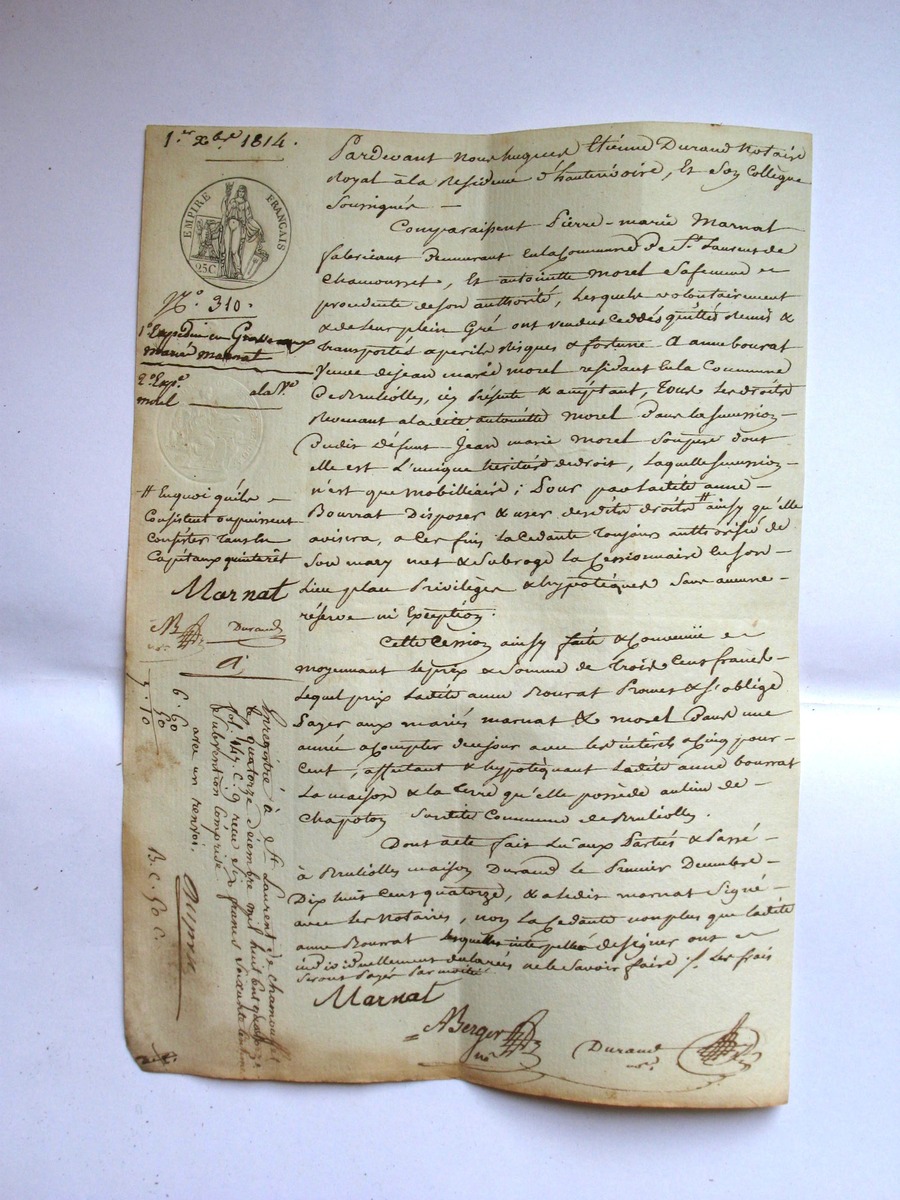 1.er Xbre 1814.
EMPIRE FRANÇAIS
25C
N.o 310.
1.o Expédié en Grosse aux
mariés marnat
2.o Exp.n a la V.e
morel
# En quoi qu'ils
Consistent ou puissent
Consister tant en
Capitaux qu'interêt
Marnat
AB Durand
Pardevant Nous hugues Etiénne Durand Notaire
Royal à la Residence d'hauterivoire, Et Son Collègue
Soussignés
Comparaissent Pierre-marie Marnat
fabricant Demeurant En la Commune De St. Laurent de
Chamousset, Et antoinette morel Sa femme
procedente de son authorité, Lesquels volontairement
& de Leur plein Gré ont vendus Ceddés quittés remis &
transportés a perils risques & fortune a anne bourat
veuve de jean marie morel residant En la Commune
De Brulliolles, icy Présente & acceptant, Tous Les droits
Revenant a ladite antoinette morel Dans la Succession
Dudit défunt Jean marie morel Son père dont
elle est L'unique heritière de droit, Laquelle Succession
n'est que mobilliaire; Pour par laditte anne
Bourrat Disposer & user desdits droits # ainsy qu'elle
avisera, a Ces fins La Cedante Toujours authorisée de
Son mary met & Subroge La Cessionnaire En Son
Lieu place Privilèges & hypotèques Sans aucune
réserve ni Exception.
Cette Cession ainsy faite & Convenüe
moyennant le prix & Somme de Trois Cent francs
Lequel prix Ladite anne Bourat Promet & S'oblige
Payer aux mariés marnat & morel Dans une
année a Compter de ce jour avec Les intérêts a Cinq pour
Cent, affectant & hypotèquant Ladite anne bourrat
La maison & la terre qu'elle possède au lieu de
Chapoton Susdite Commune de Brulliolles.
Dont acte fait Lu aux Parties & Passé
à Brulliolles maison Durand le Premier Decembre
Dix huit Cent quatorze, & a Ledit marnat Signé
avec Les Notaires, non La Cedante non plus que Ladite
anne Bourrat Lesquelles interpellées de signer ont
individuellement declarées ne le Savoir faire /. Les frais
Seront Payés Par moitié
Marnat
ABerger
n.re
Durand
n.re
Enregistré à St. Laurent de Chamousset
le quatorze Décembre mil huit Cent quatorze
fol. 147. C. 9 reçu Six francs Soixante Centimes
Subvention Comprise
avec un renvoi.
6. 60
50
7. 10
B. C. 50 C.